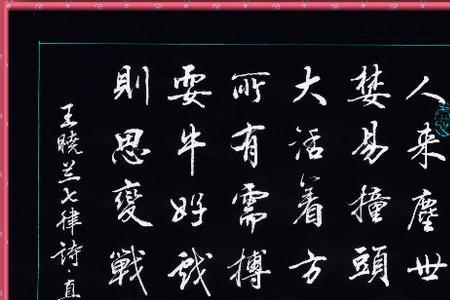 人来塵世
婪易撞頭
大活着方
所有需搏
牛好
則思變戰
王曉兰七律詩·直